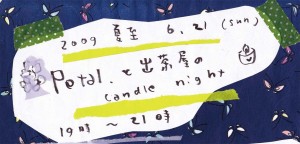 2009 夏至 6.21 (sun)
Petal.と出茶屋の
candle night
19時〜21時